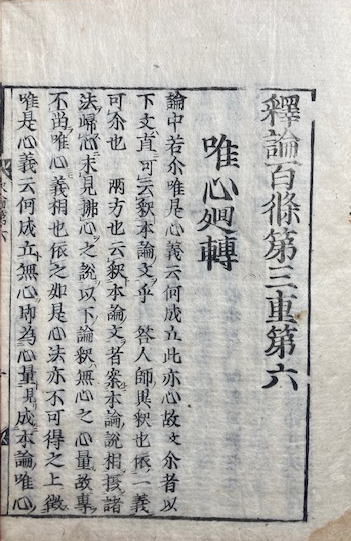 釋論百條第三重第六
唯心廻轉
論中若尒唯是心義云何成立此亦心故文尒者以
下文直可云釈本論文乎 答人師異釈也依一義
可尒也 兩方也云釈本論文者案本論說相攝諸
法歸心未見挪心之說以下論釈無心之心量故專
不尚唯心義相也依之如是心法亦不可得之上徴
唯是心義云何成立無心時為心量見成本論唯心